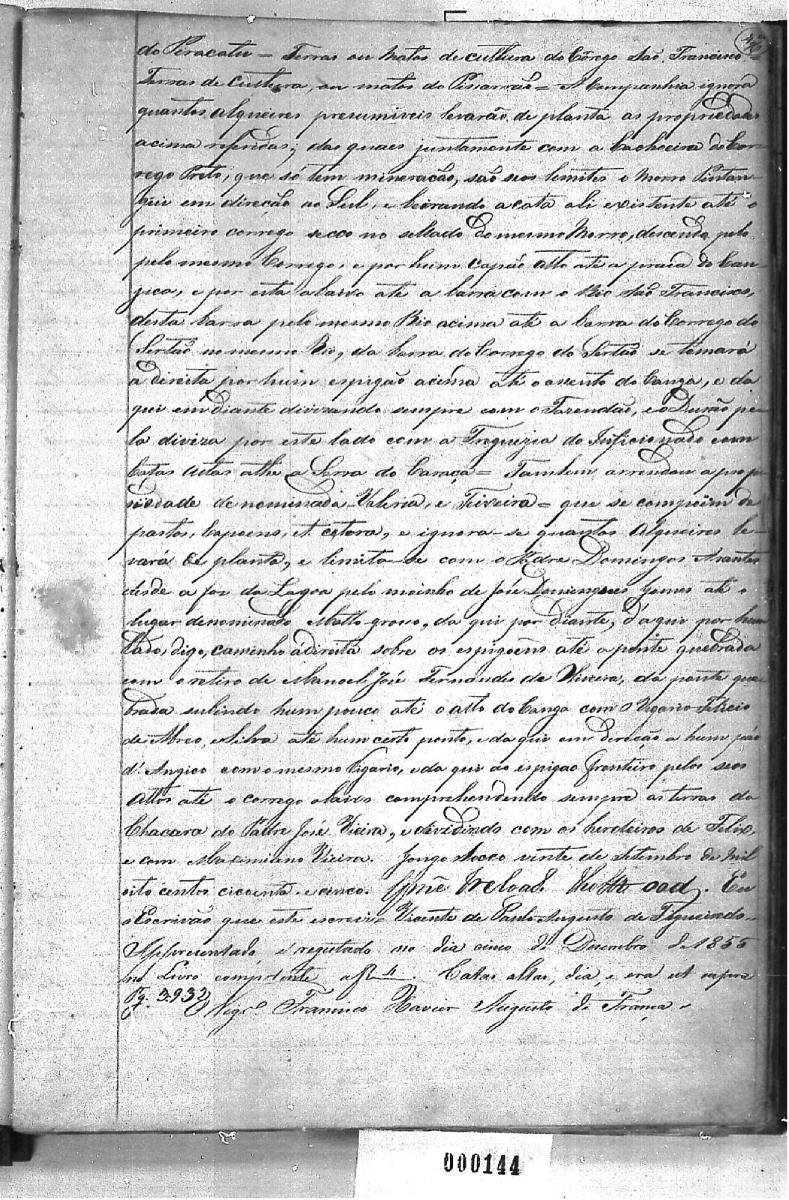 do Piracatu = Terras ou matos de cultura do Corego São Francisco =
Terras de Cultura, ou matos do Pissarrão = A Companhia ignora
quantos Alqueires presumiveis levarão de planta as propriedades
acima referidas; das quaes juntamente com a Cachoeira do Cor-
rego Preto, que só tem mineração, são seus limites o Morro
em direção ao Sul, e beirando a cata ali existente até o
primeiro corrego secco no sellado do mesmo Morro, descendo pelo
pelo mesmo Corrego, e por hum capão Alto até a praia do Can-
jica, e por esta abaixo até a barra com o Rio São Francisco,
desta barra pelo mesmo Rio acima até a barra do Corrego do
Sertão no mesmo Rio, da barra do Corrego do Sertão se tomará
a direita por hum espigão acima até o do Canga, e da
qui em diante divizando sempre com o Fazendão, e o Durão pe-
la diviza por este lado com a Freguezia do Inficionado com
Catas Altas athe a Serra do Caraça = Tambem arrendou a prop
riedade denominada Valeria, e Teixeira = que se compoem de
pastos, Capoens, et cetera, e ignora-se quantos Alqueires le-
vará de planta, e limita-se com o Padre Domingos
desde a foz da Lagoa pelo moinho de José Domingues Gomes até o
lugar denominado Matto grosso, da qui por diante, d'aqui por hum
lado, digo, caminho a direita sobre os espigoens até a ponte quebrada
com o retiro de Manoel José Fernandes de Oliveira, da ponte que-
brada subindo hum pouco até o alto do Canga com o Vigario
de Abreo, e Silva até hum certo ponto, e da qui em direção a hum páo
d'Angico com o mesmo Vigario, e da qui ao espigão fronteiro pelos seos
Altos até o corrego comprehendendo sempre as terras da
Chacara do Padre José Vieira, e dividindo com os herdeiros de Felix,
e com Maximiano Vieira. Gongo Socco vinte de Setembro de mil
oito centos cicoenta e cinco. Eu
o Escrivão que este escrevi = Vicente de Paulo Augusto de Figueiredo =
Appresentado e registado no dia cinco de Dezembro de 1855
no Livro competente a f 4. Catas altas, dia, e era ut supra
Pg. 3.932 Vigr.º Francisco Xavier Augusto de França =
000144